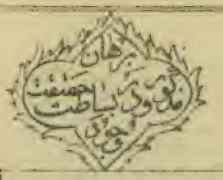 برهان
مذکور در بساطت حقیقت
وجود